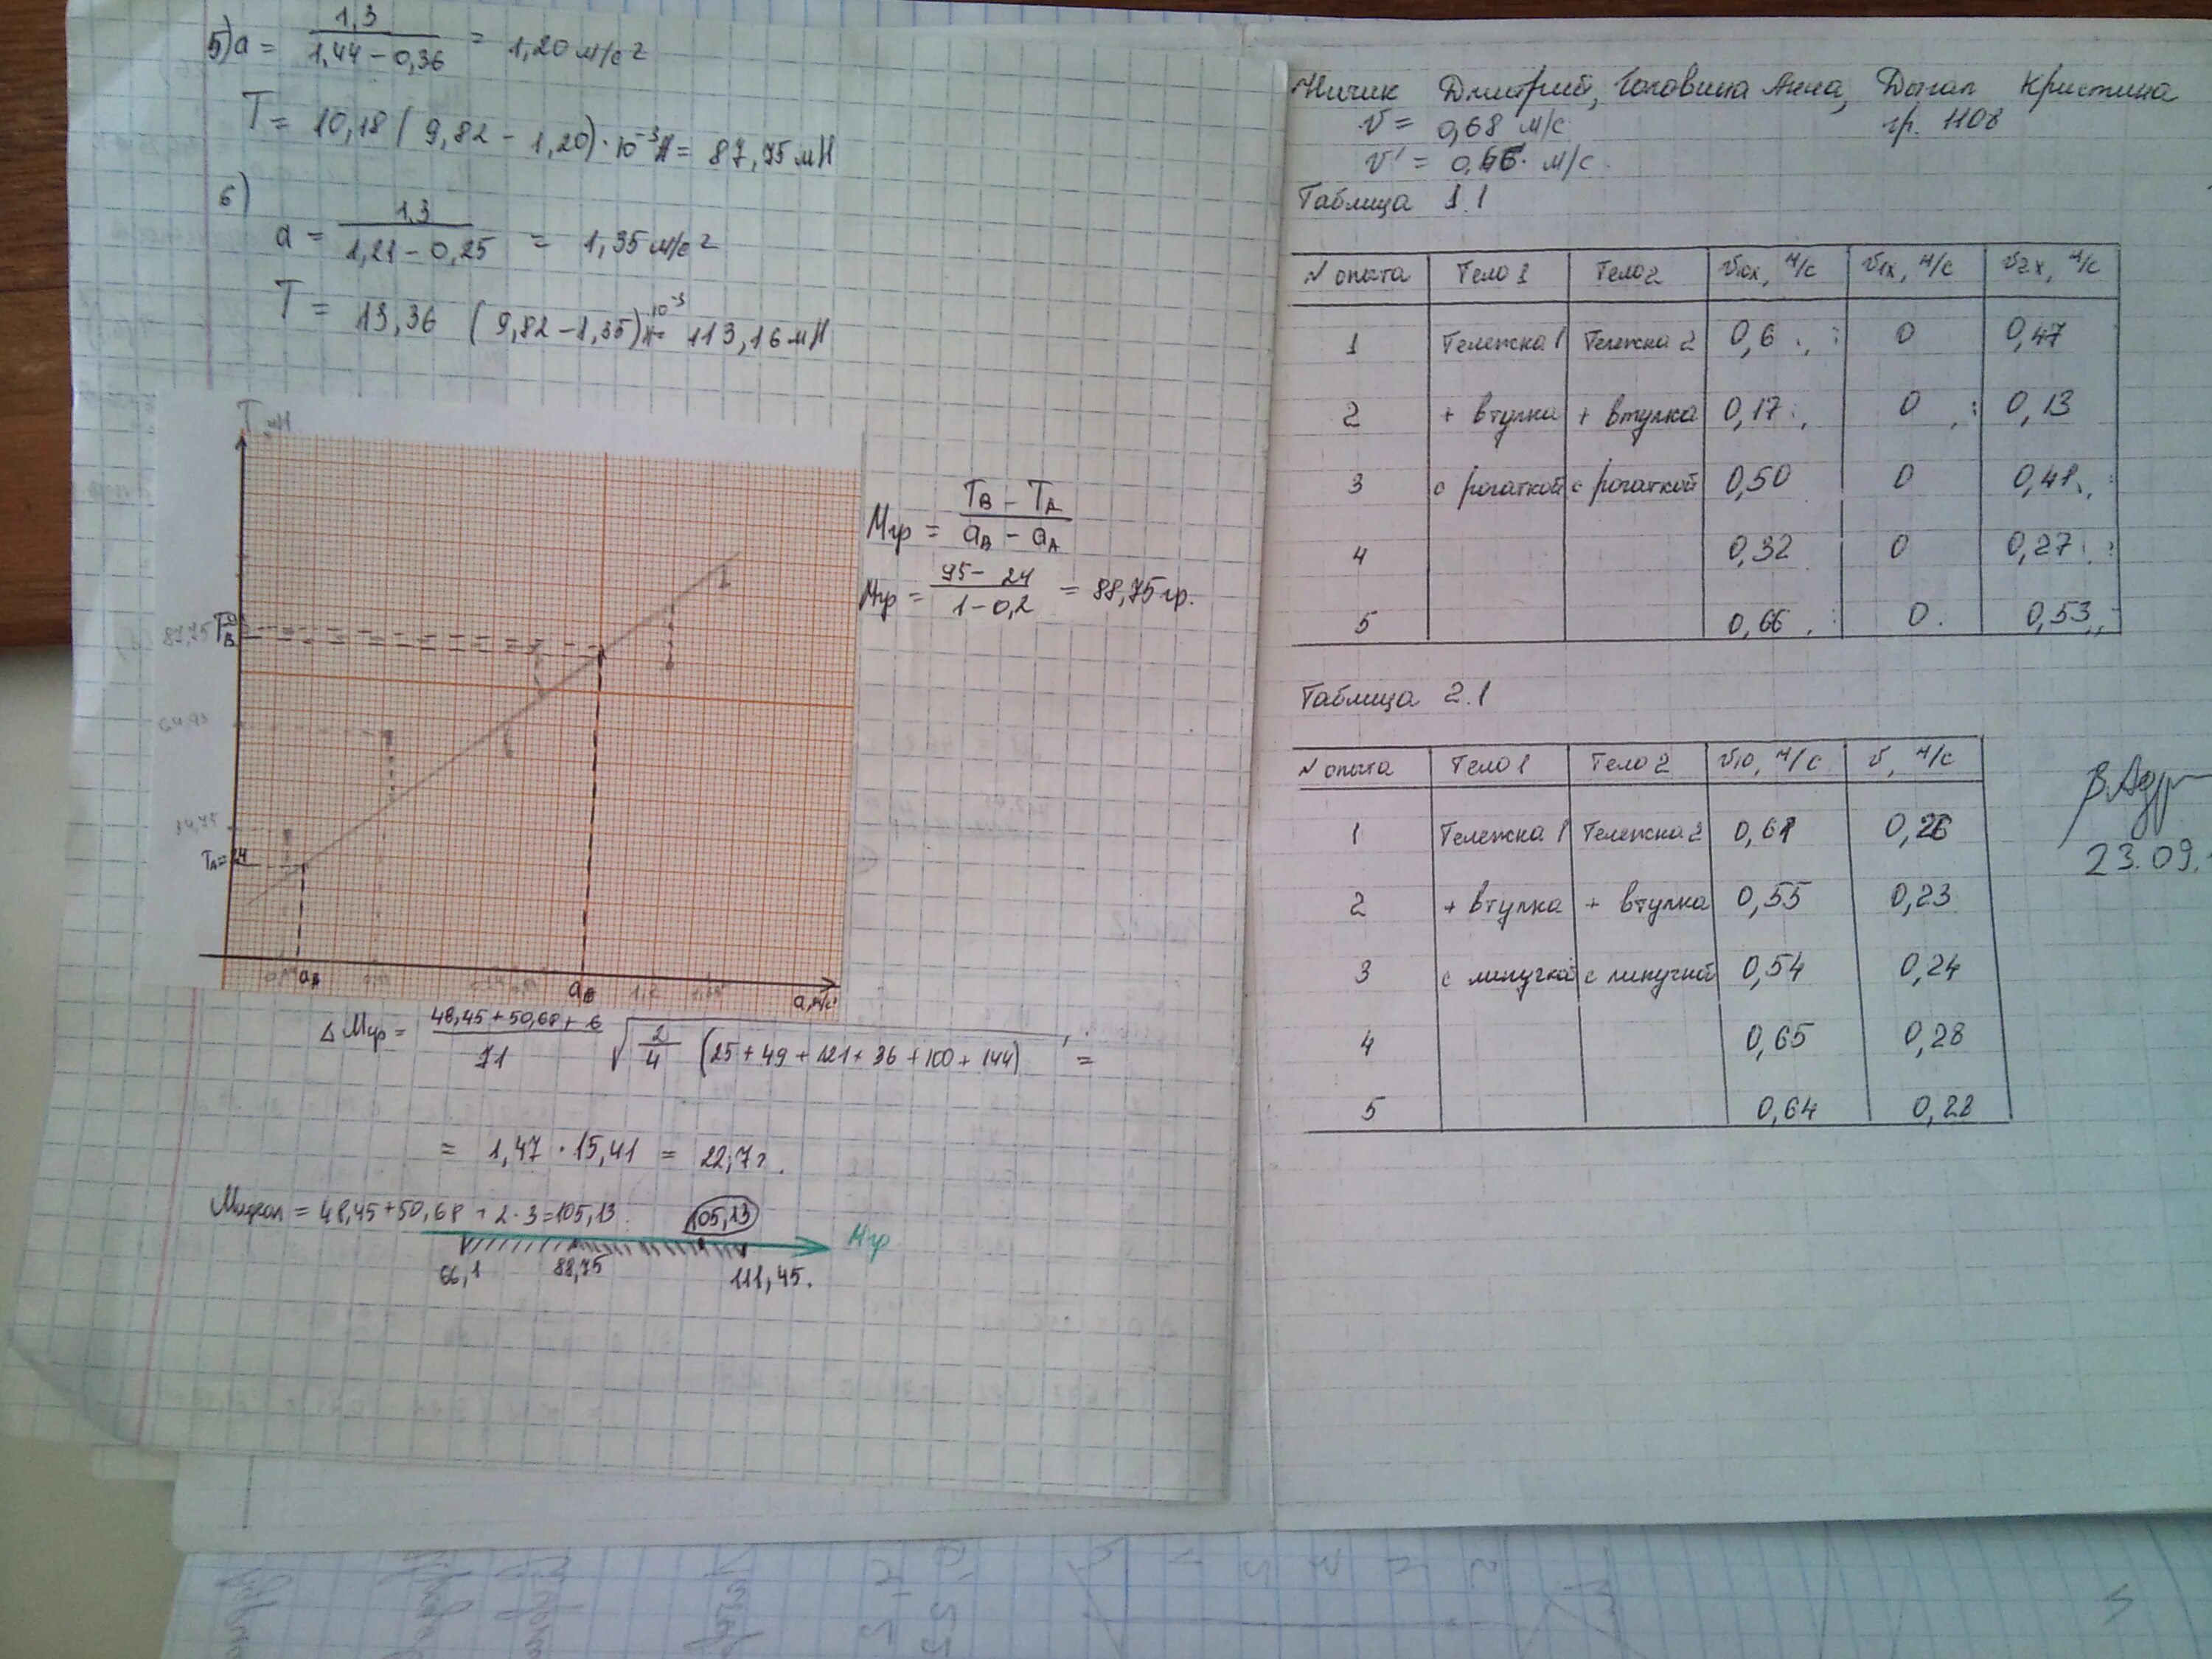 5) a = 1,3 / (1,44 – 0,36) = 1,20 м/с²
T = 10,18 ( 9,82 – 1,20) · 10⁻³ Н = 87,75 мН
6)
a = 1,3 / (1,21 – 0,25) = 1,35 м/с²
T = 13,36 (9,82 – 1,35) 10⁻³ Н = 113,16 мН
T, мН
87,75 TB
64,93
34,75
TA = 24
aA
aB
1,2
a, м/с²
Mгр = (TB – TA) / (aB – aA)
Mгр = (95 – 24) / (1 – 0,2) = 88,75 гр.
Δ Mгр = (48,45 + 50,68 + 6) / 71 √(2/4 (25 + 49 + 121 + 36 + 100 + 144)) =
= 1,47 · 15,41 = 22,7 г.
= 48,45 + 50,68 + 2·3 = 105,13
105,13
Mгр
66,1 88,75 111,45.
Ничик Дмитрий, Головина Анна, Дыгал Кристина
v = 0,68 м/с гр. 1108
v' = 0,66 м/с.
Таблица 1.1
N опыта Тело 1 Тело 2 v10x, м/с v1x, м/с v2x, м/с
1 Тележка 1 Тележка 2 0,6 0 0,47
2 + втулка + втулка 0,17 0 0,13
3 с рогаткой с рогаткой 0,50 0 0,41
4 0,32 0 0,27
5 0,66 0 0,53
Таблица 2.1
N опыта Тело 1 Тело 2 v10, м/с v, м/с
1 Тележка 1 Тележка 2 0,61 0,26
2 + втулка + втулка 0,55 0,23
3 с липучкой с липучкой 0,54 0,24
4 0,65 0,28
5 0,64 0,28
23.09.